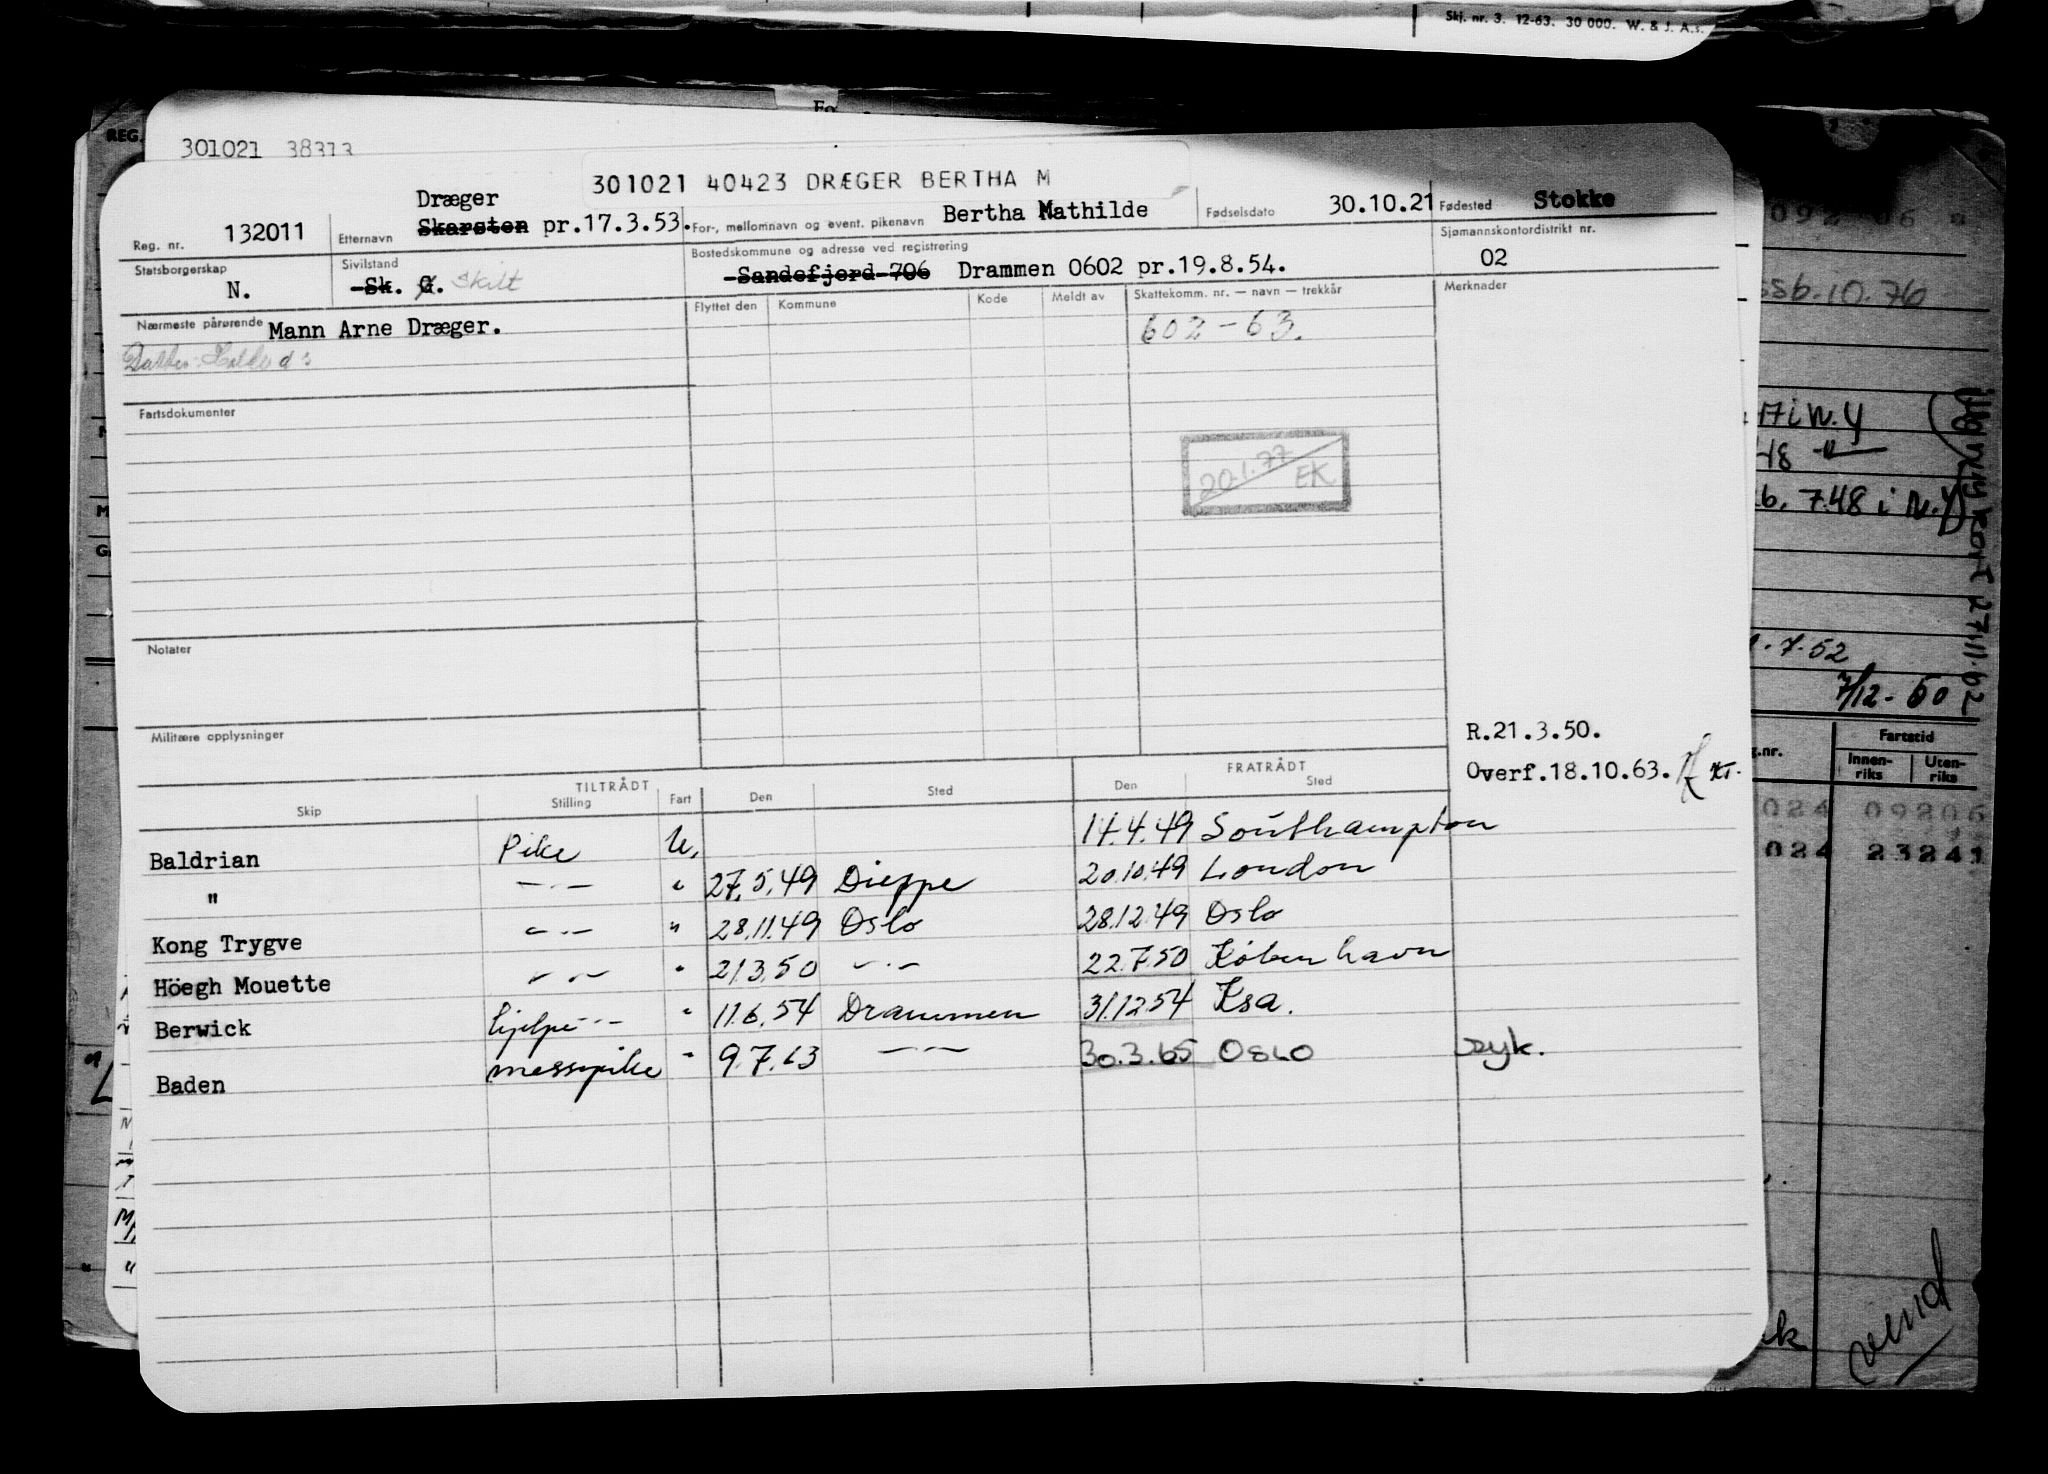 Skj. nr. 3. 12-63. 30 000. W. & J. A.s.
REG.
301021 38313
301021 40423 DRÆGER BERTHA M
Reg. nr. 132011
Etternavn Dræger
Skarsten pr.17.3.53.
For-, mellomnavn og event. pikenavn Bertha Mathilde
Fødselsdato 30.10.21
Fødested Stokke
Statsborgerskap N.
Sivilstand Sk. G. Skilt
Bostedskommune og adresse ved registrering
Sandefjord 706 Drammen 0602 pr.19.8.54.
Sjømannskontordistrikt nr.
02
Nærmeste pårørende Mann Arne Dræger.
Flyttet den Kommune Kode Meldt av Skattekomm. nr. — navn — trekkår Merknader
602-63.
Fartsdokumenter
20.1.77 EK
Notater
Militære opplysninger
R.21.3.50.
Overf.18.10.63. kr.
TILTRÅDT FRATRÅDT
Skip Stilling Fart Den Sted Den Sted
Baldrian Pike U. 14.4.49 Southampton
" —·— " 27.5.49 Dieppe 20.10.49 London
Kong Trygve —·— " 28.11.49 Oslo 28.12.49 Oslo
Höegh Mouette —·— " 21.3.50 —·— 22.7.50 København
Berwick hjelpe—·— " 11.6.54 Drammen 31.12.54 Ksa.
Baden messepike " 9.7.63 —·— 30.3.65 OSLO syk.
17 i N.Y
48 —"—
7.48 i N.Y
7.52
7/12-50
27/11-62
Fartstid
g.nr. Innen-riks Uten-riks
024 09206
024 23241
vend